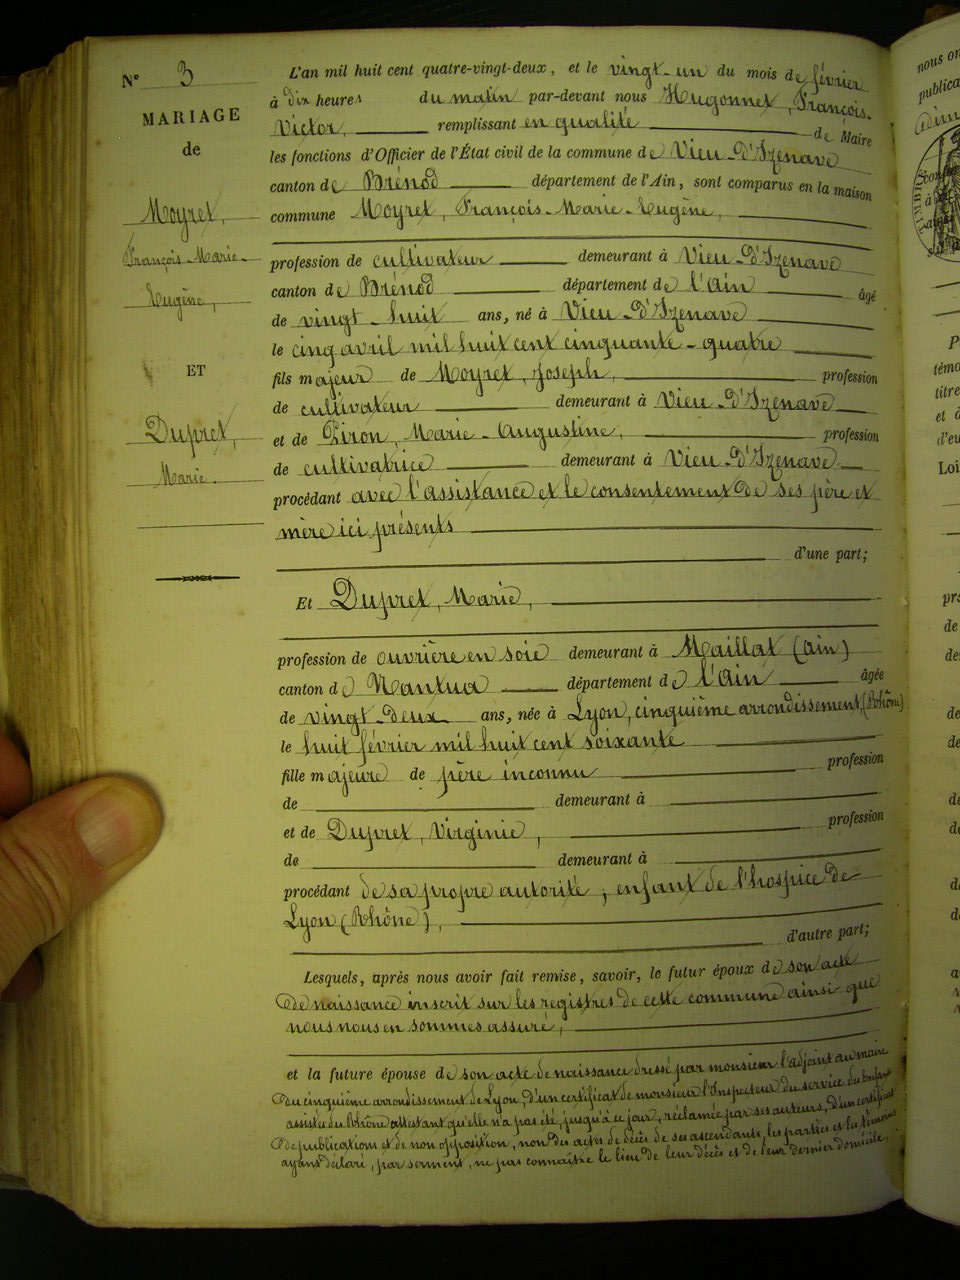 N° 3
MARIAGE
de
Moyret,
François-Marie-
Eugène,
ET
Dupret,
Marie.
L'an mil huit cent quatre-vingt-deux, et le vingt-un du mois de février
à dix heures du matin par-devant nous Hugonnet, François-
Victor, remplissant en qualité de Maire
les fonctions d'Officier de l'État civil de la commune de Vieu-d'Izenave
canton de Brénod département de l'Ain, sont comparus en la maison
commune Moyret, François-Marie-Eugène,
profession de cultivateur demeurant à Vieu-d'Izenave
canton de Brénod département de l'Ain âgé
de vingt-huit ans, né à Vieu-d'Izenave
le cinq avril mil huit cent cinquante-quatre
fils majeur de Moyret, Joseph, profession
de cultivateur demeurant à Vieu-d'Izenave
et de Piron, Marie-Augustine, profession
de cultivatrice demeurant à Vieu-d'Izenave
procédant avec l'assistance et le consentement de ses père et
mère ici présents
d'une part;
Et Dupret, Marie,
profession de ouvrière en soie demeurant à Maillat (Ain)
canton de Nantua département de l'Ain âgée
de vingt-deux ans, née à Lyon, cinquième arrondissement (Rhône)
le huit février mil huit cent soixante
fille majeure de père inconnu profession
de demeurant à
et de Dupret, Virginie, profession
de demeurant à
procédant de sa propre autorité, enfant de l'hospice de
Lyon (Rhône),
d'autre part;
Lesquels, après nous avoir fait remise, savoir, le futur époux de son acte
de naissance inscrit sur les registres de cette commune ainsi que
nous nous en sommes assuré,
et la future épouse de son acte de naissance dressé par monsieur l'adjoint au maire
du cinquième arrondissement de Lyon, d'un certificat de monsieur l'Inspecteur du service des Enfants
assistés du Rhône attestant qu'elle n'a pas été, jusqu'à ce jour, réclamée par ses auteurs, d'un certificat
de publications et de non opposition, non des actes de décès de ses ascendants, les parties et les témoins
ayant déclaré, par serment, ne pas connaître le lieu de leur décès et de leur dernier domicile.
nous on
publica
témo
titre
et à
d'eu
Loi